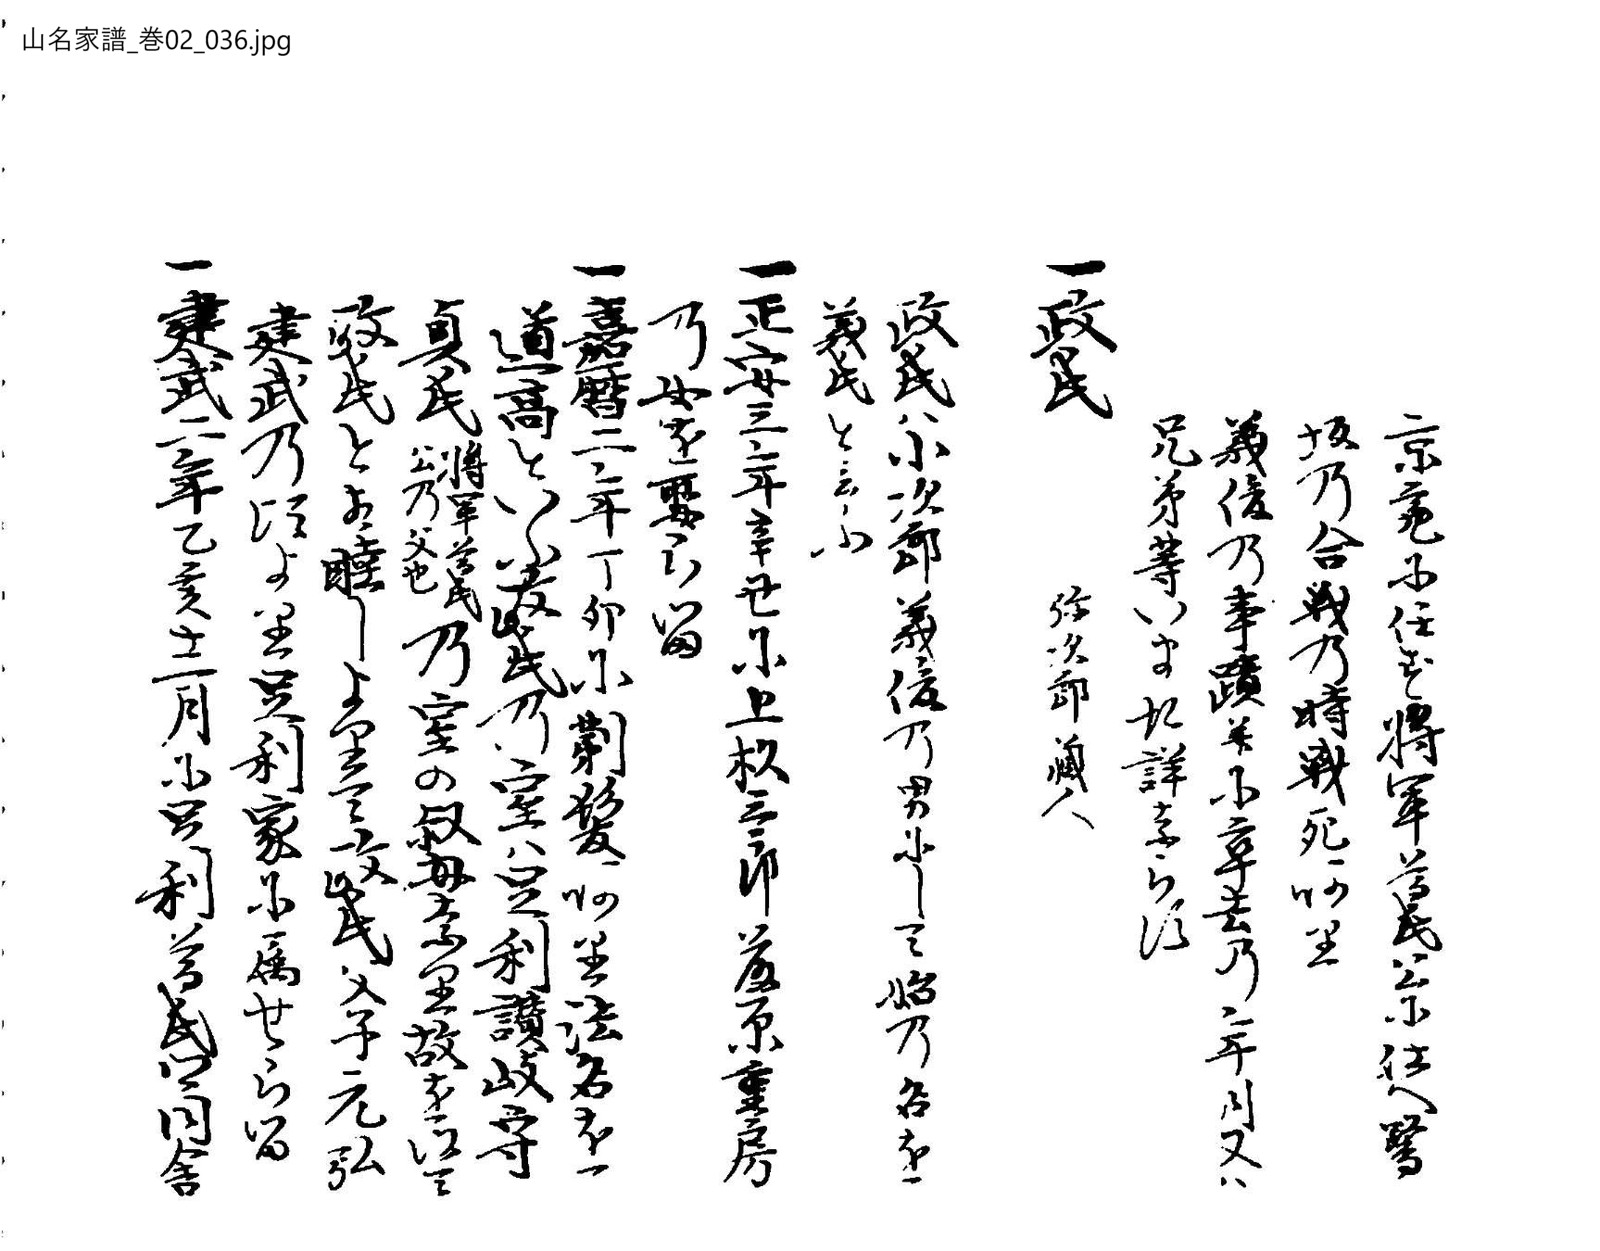 山名家譜_巻02_036.jpg
京亮に任す将軍尊氏公に仕へ鷺
坂乃合戦乃時戦死
義俊乃事蹟并に卒去乃年月又ハ
兄弟等いま詳ならす
一政氏 弥次郎 蔵人
政氏ハ小次郎義俊乃男にして始乃名を
義氏と云ふ
一正安三年辛丑に上杉三郎藤原重房
乃女を娶らる
一嘉暦二年丁卯に薙髪ありて法名を
道高といふ政氏乃室ハ足利讃岐守
貞氏 将軍尊氏公乃父也 乃室の叔母なり故を以て
政氏と相睦しよりて政氏父子元弘
建武乃頃より足利家に属せらる
一建武二年乙亥十一月に足利尊氏公同舎